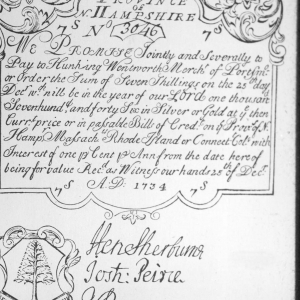 PROVINCE
N. HAMPSHIRE
7S No (3040) 7S
We PROMISE Jointly and Severally to
Pay to Hunking Wentworth Merch.t of Portsm.o
or Order the Sum of Seven Shillings on the 25th day
Dec.r wch will be in the year of our LORD one thousand
Sevenhund.d and forty Two in Silver or Gold at ye then
Curr.t price or in passable Bills of Cred.t on ye Prov.s of N.
Hamp. Massach. Rhode Island or Connect Col.s with
Interest of one p Cent p Ann from the date here of
being for value Rec.d as Witness our hands 25th of Dec.r
7S A:D: 1734 7S
Hen Sherburne
Josh: Peirce